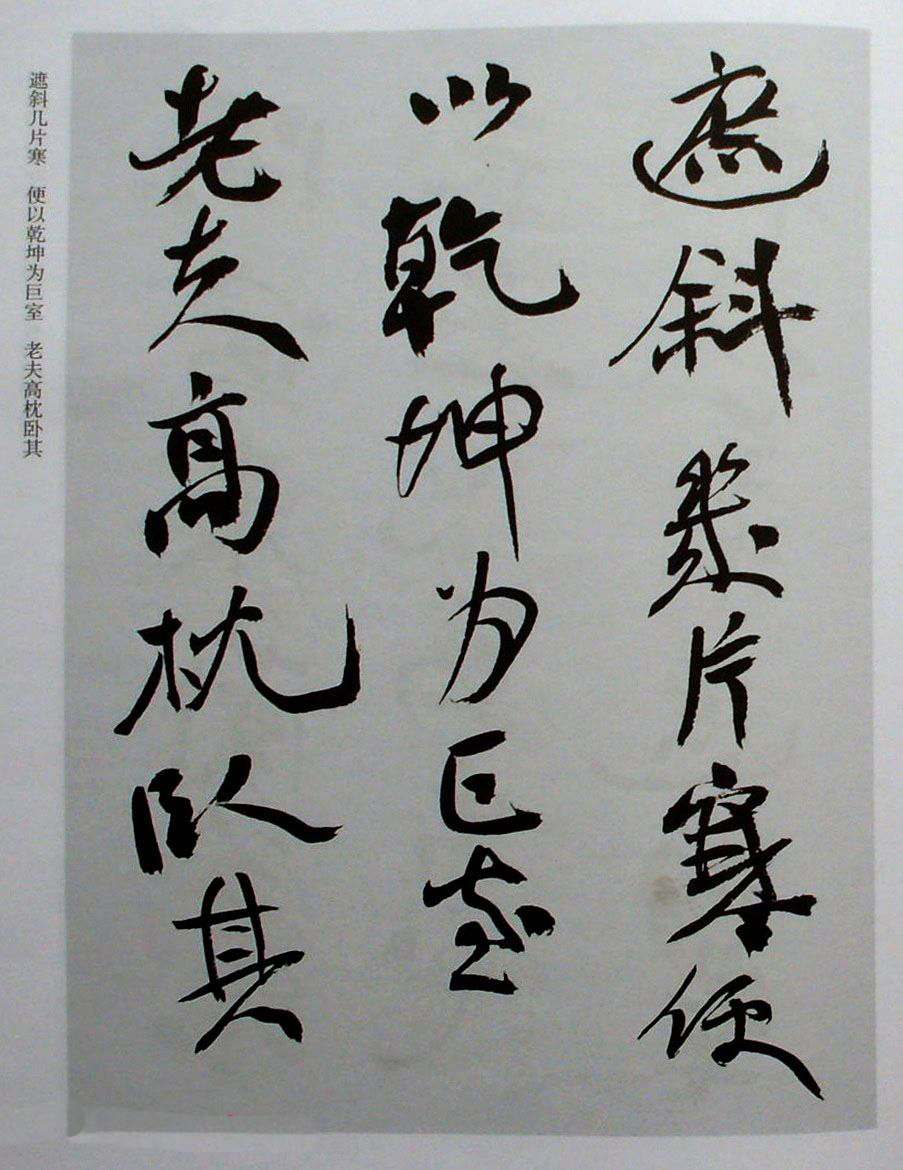 遮斜幾片寒便
以乾坤为巨室
老夫高枕卧其
遮斜几片寒　便以乾坤为巨室　老夫高枕卧其